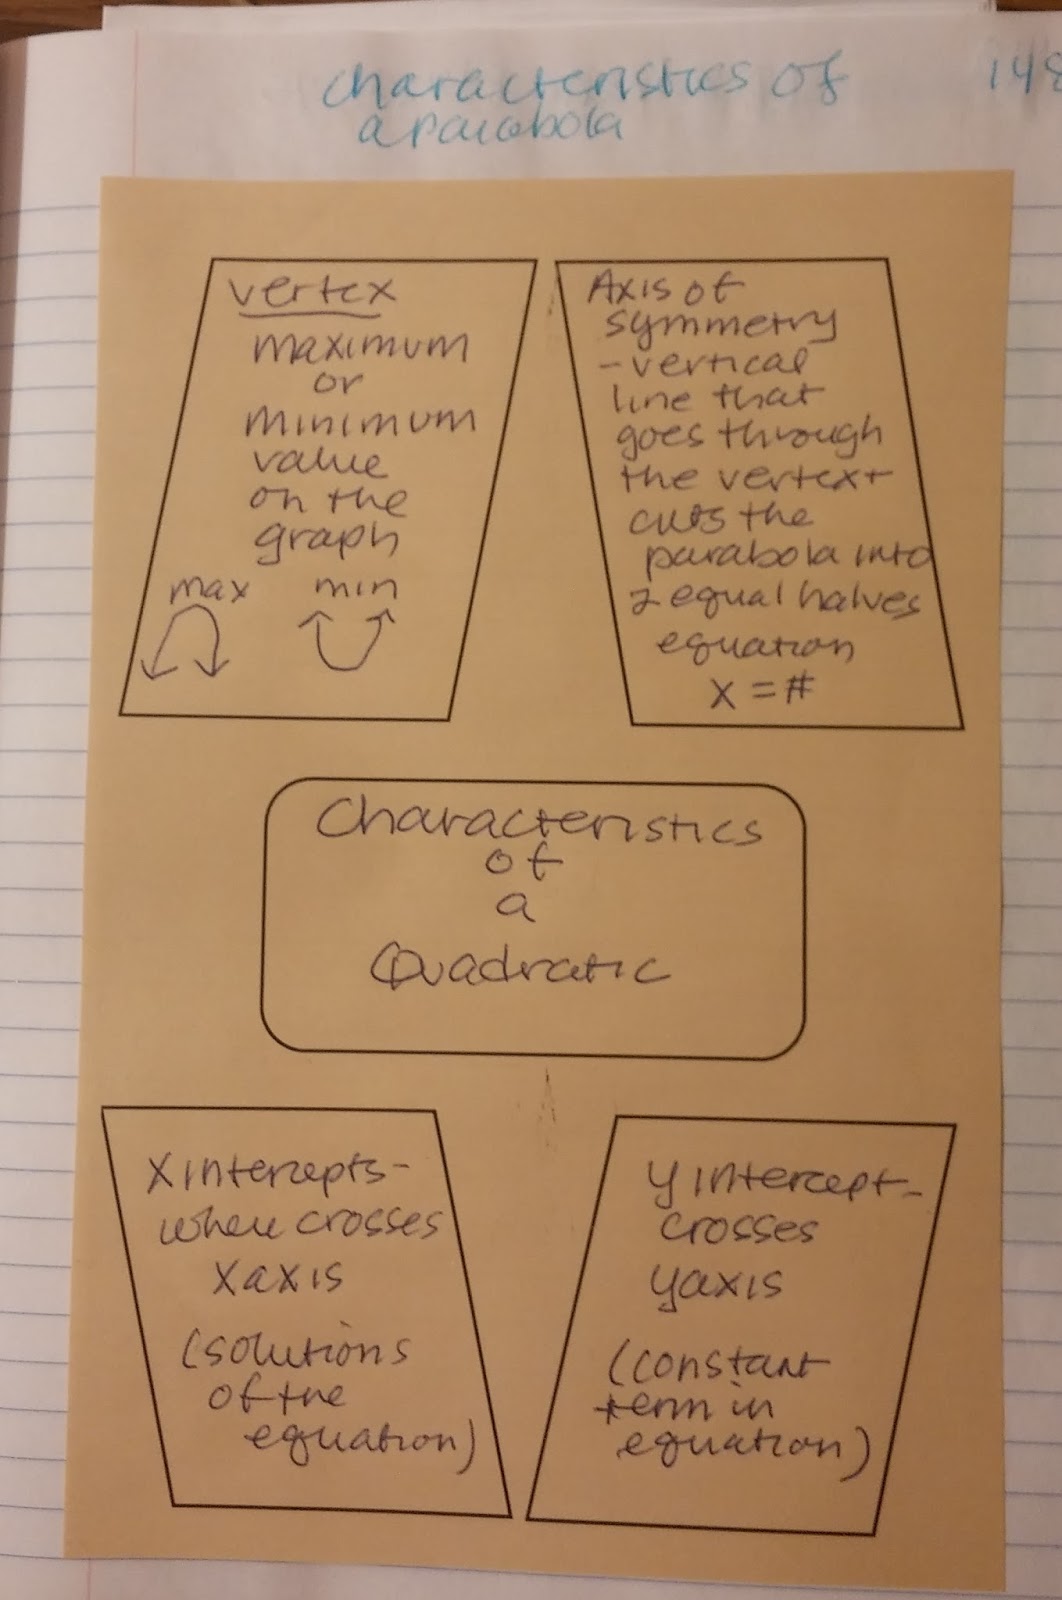 characteristics of
a parabola
148
vertex
maximum
or
minimum
value
on the
graph
max min
Axis of
symmetry
- vertical
line that
goes through
the vertex +
cuts the
parabola into
2 equal halves
equation
x = #
Characteristics
of
a
Quadratic
x intercepts -
where crosses
x axis
(solutions
of the
equation)
y intercept -
crosses
y axis
(constant
term in
equation)